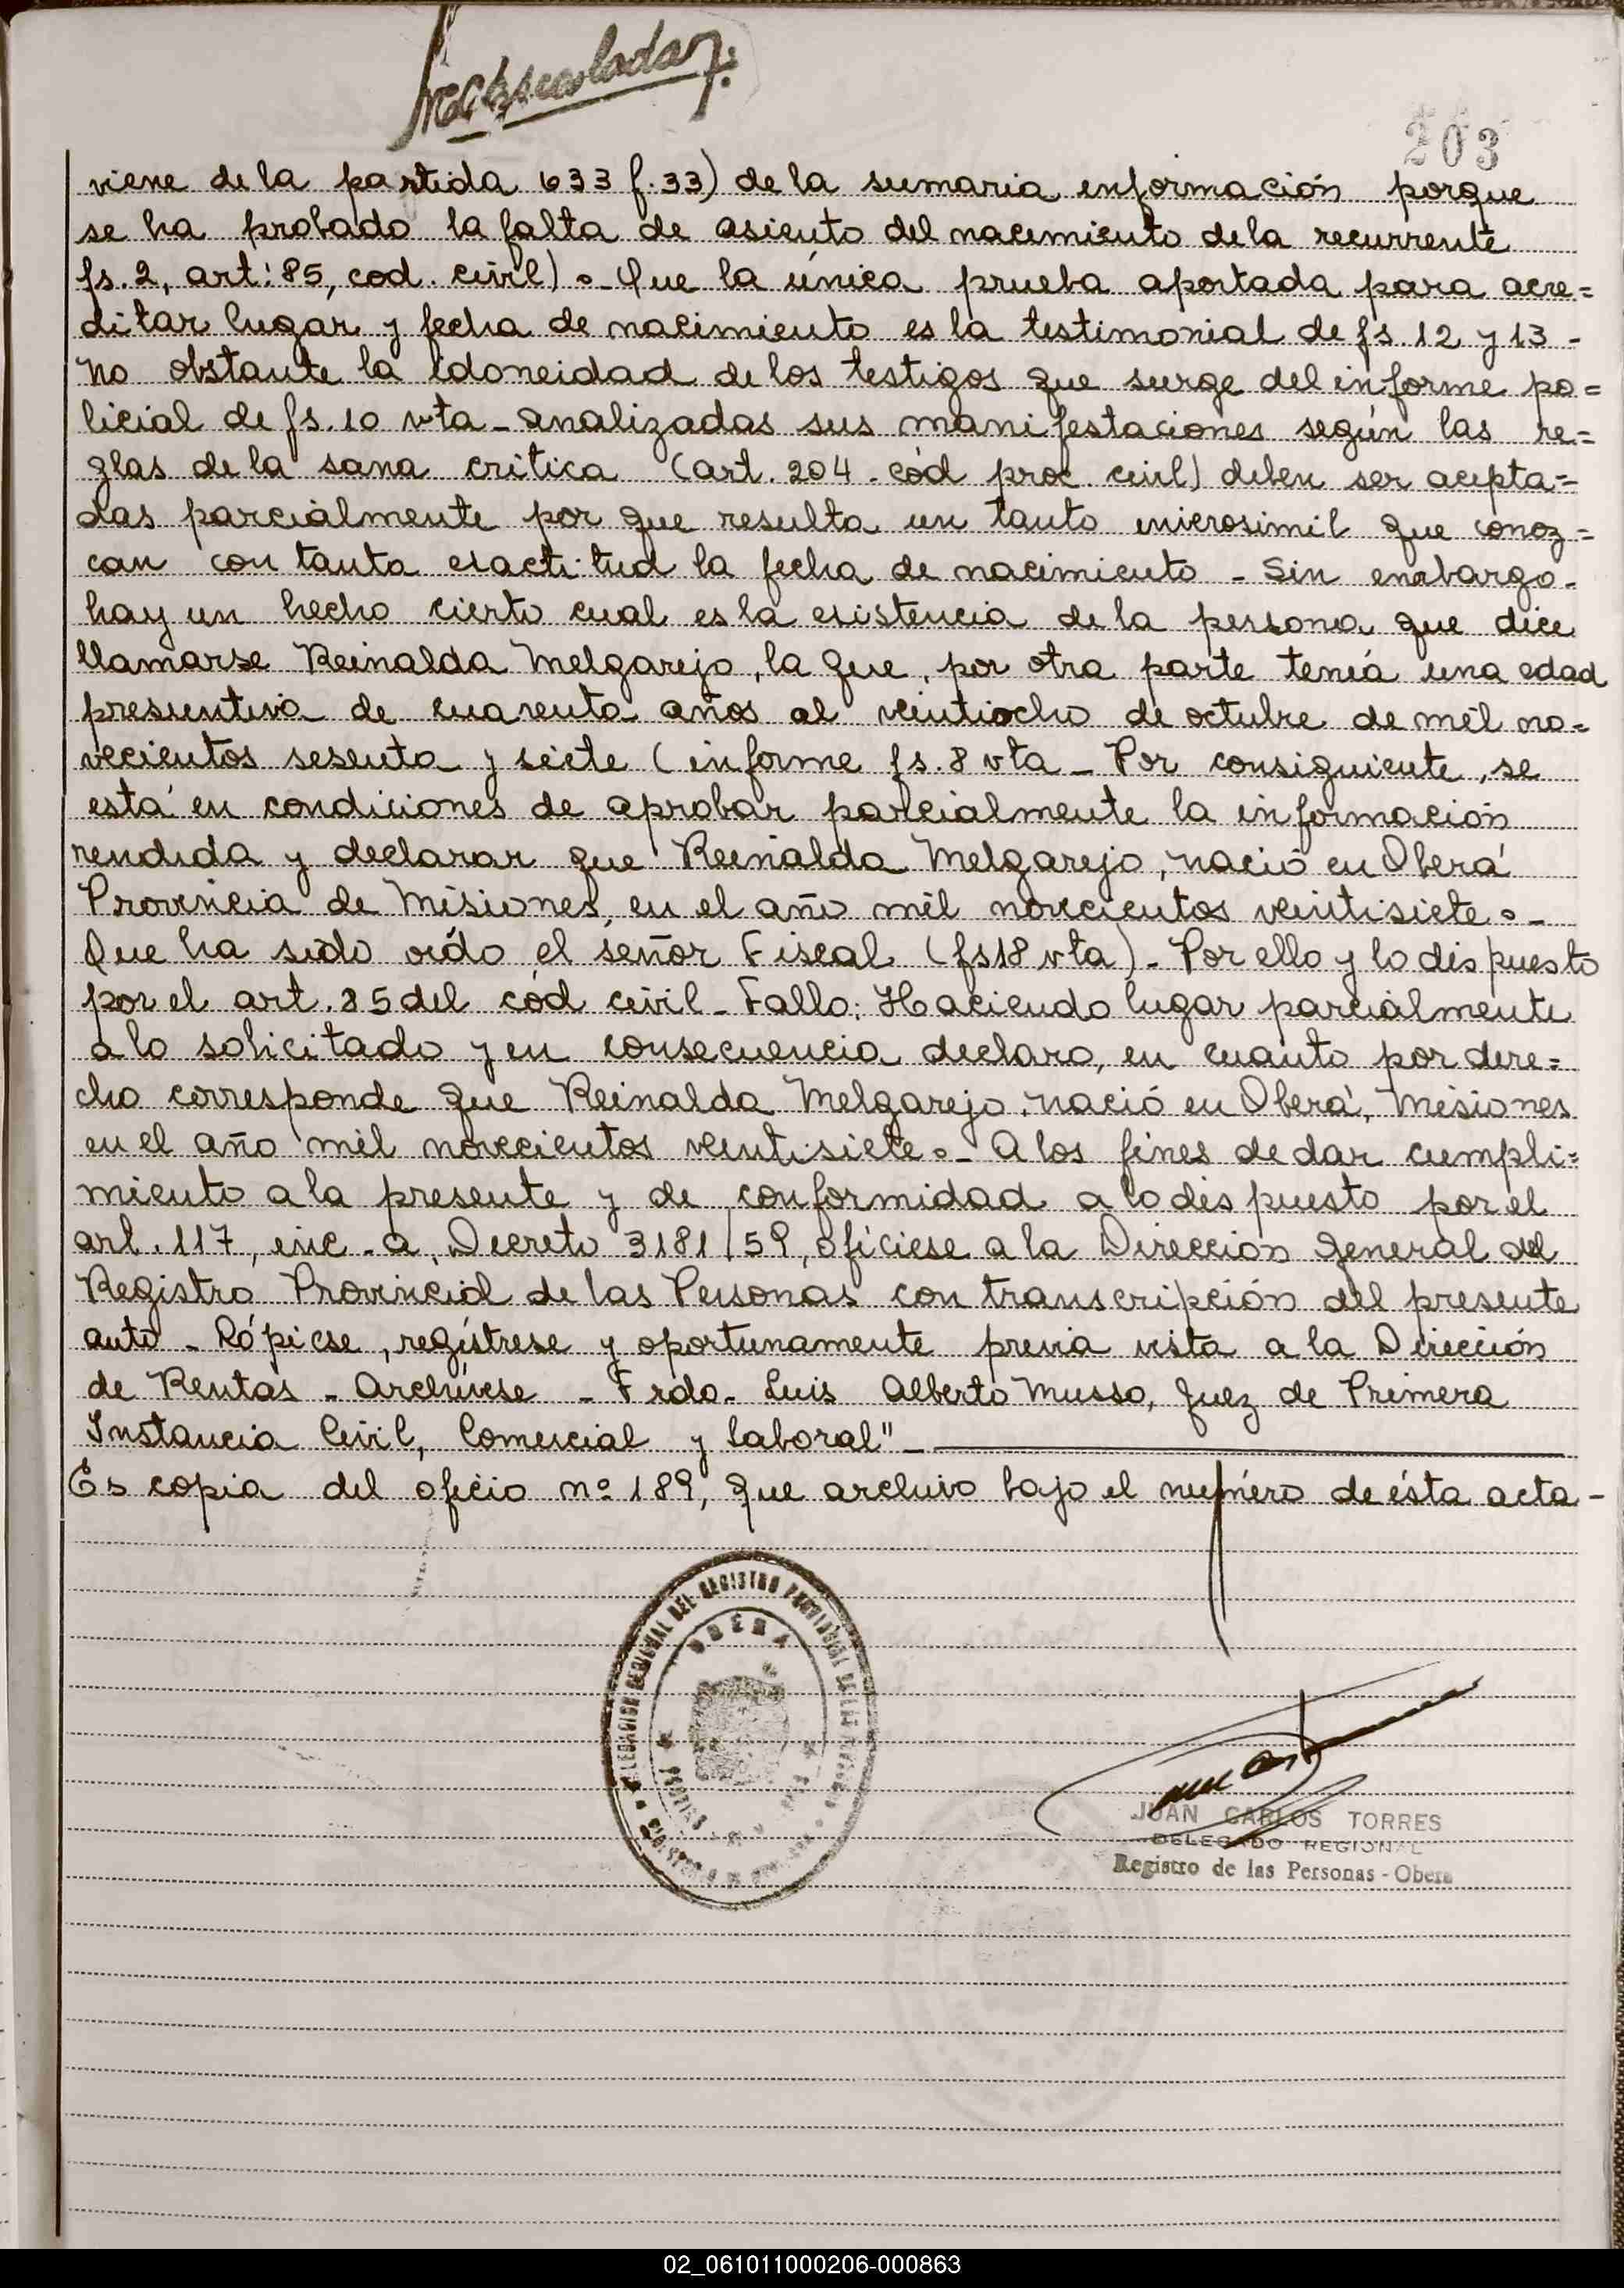 203
viene de la partida 633 f. 33) de la sumaria información porque
se ha probado la falta de asiento del nacimiento de la recurrente
fs. 2, art: 85, cod. civil) o- Que la única prueba aportada para acre=
ditar lugar y fecha de nacimiento es la testimonial de fs. 12 y 13 -
No obstante la idoneidad de los testigos que surge del informe po=
licial de fs. 10 vta - analizadas sus manifestaciones según las re=
glas de la sana crítica (art. 204 - cód proc. civil) deben ser acepta=
das parcialmente por que resulta un tanto inverosimil que conoz=
can con tanta exactitud la fecha de nacimiento - Sin embargo -
hay un hecho cierto cual es la existencia de la persona que dice
llamarse Reinalda Melgarejo, la que, por otra parte tenía una edad
presuntiva de cuarenta años al veintiocho de octubre de mil no=
vecientos sesenta y siete (informe fs. 8 vta - Por consiguiente, se
está en condiciones de aprobar parcialmente la información
rendida y declarar que Reinalda Melgarejo, nació en Oberá
Provincia de Misiones, en el año mil novecientos veintisiete o-
Que ha sido oído el señor Fiscal (fs 18 vta) - Por ello y lo dispuesto
por el art. 85 del cód civil - Fallo: Haciendo lugar parcialmente
a lo solicitado y en consecuencia declaro, en cuanto por dere=
cho corresponde que Reinalda Melgarejo, nació en Oberá, Misiones
en el año mil novecientos veintisiete o- A los fines de dar cumpli=
miento a la presente y de conformidad a lo dispuesto por el
art. 117, inc - a, Decreto 3181/59, ofíciese a la Dirección General del
Registro Provincial de las Personas con transcripción del presente
auto - Cópiese, regístrese y oportunamente previa vista a la Dirección
de Rentas - Archívese - Frdo - Luis Alberto Musso, Juez de Primera
Instancia Civil, Comercial y Laboral" -
Es copia del oficio nº 189, que archivo bajo el número de ésta acta -
DELEGACION REGIONAL DEL REGISTRO PROVINCIAL DE LAS PERSONAS
OBERA
JUAN CARLOS TORRES
DELEGADO REGIONAL
Registro de las Personas - Obera
02_061011000206-000863